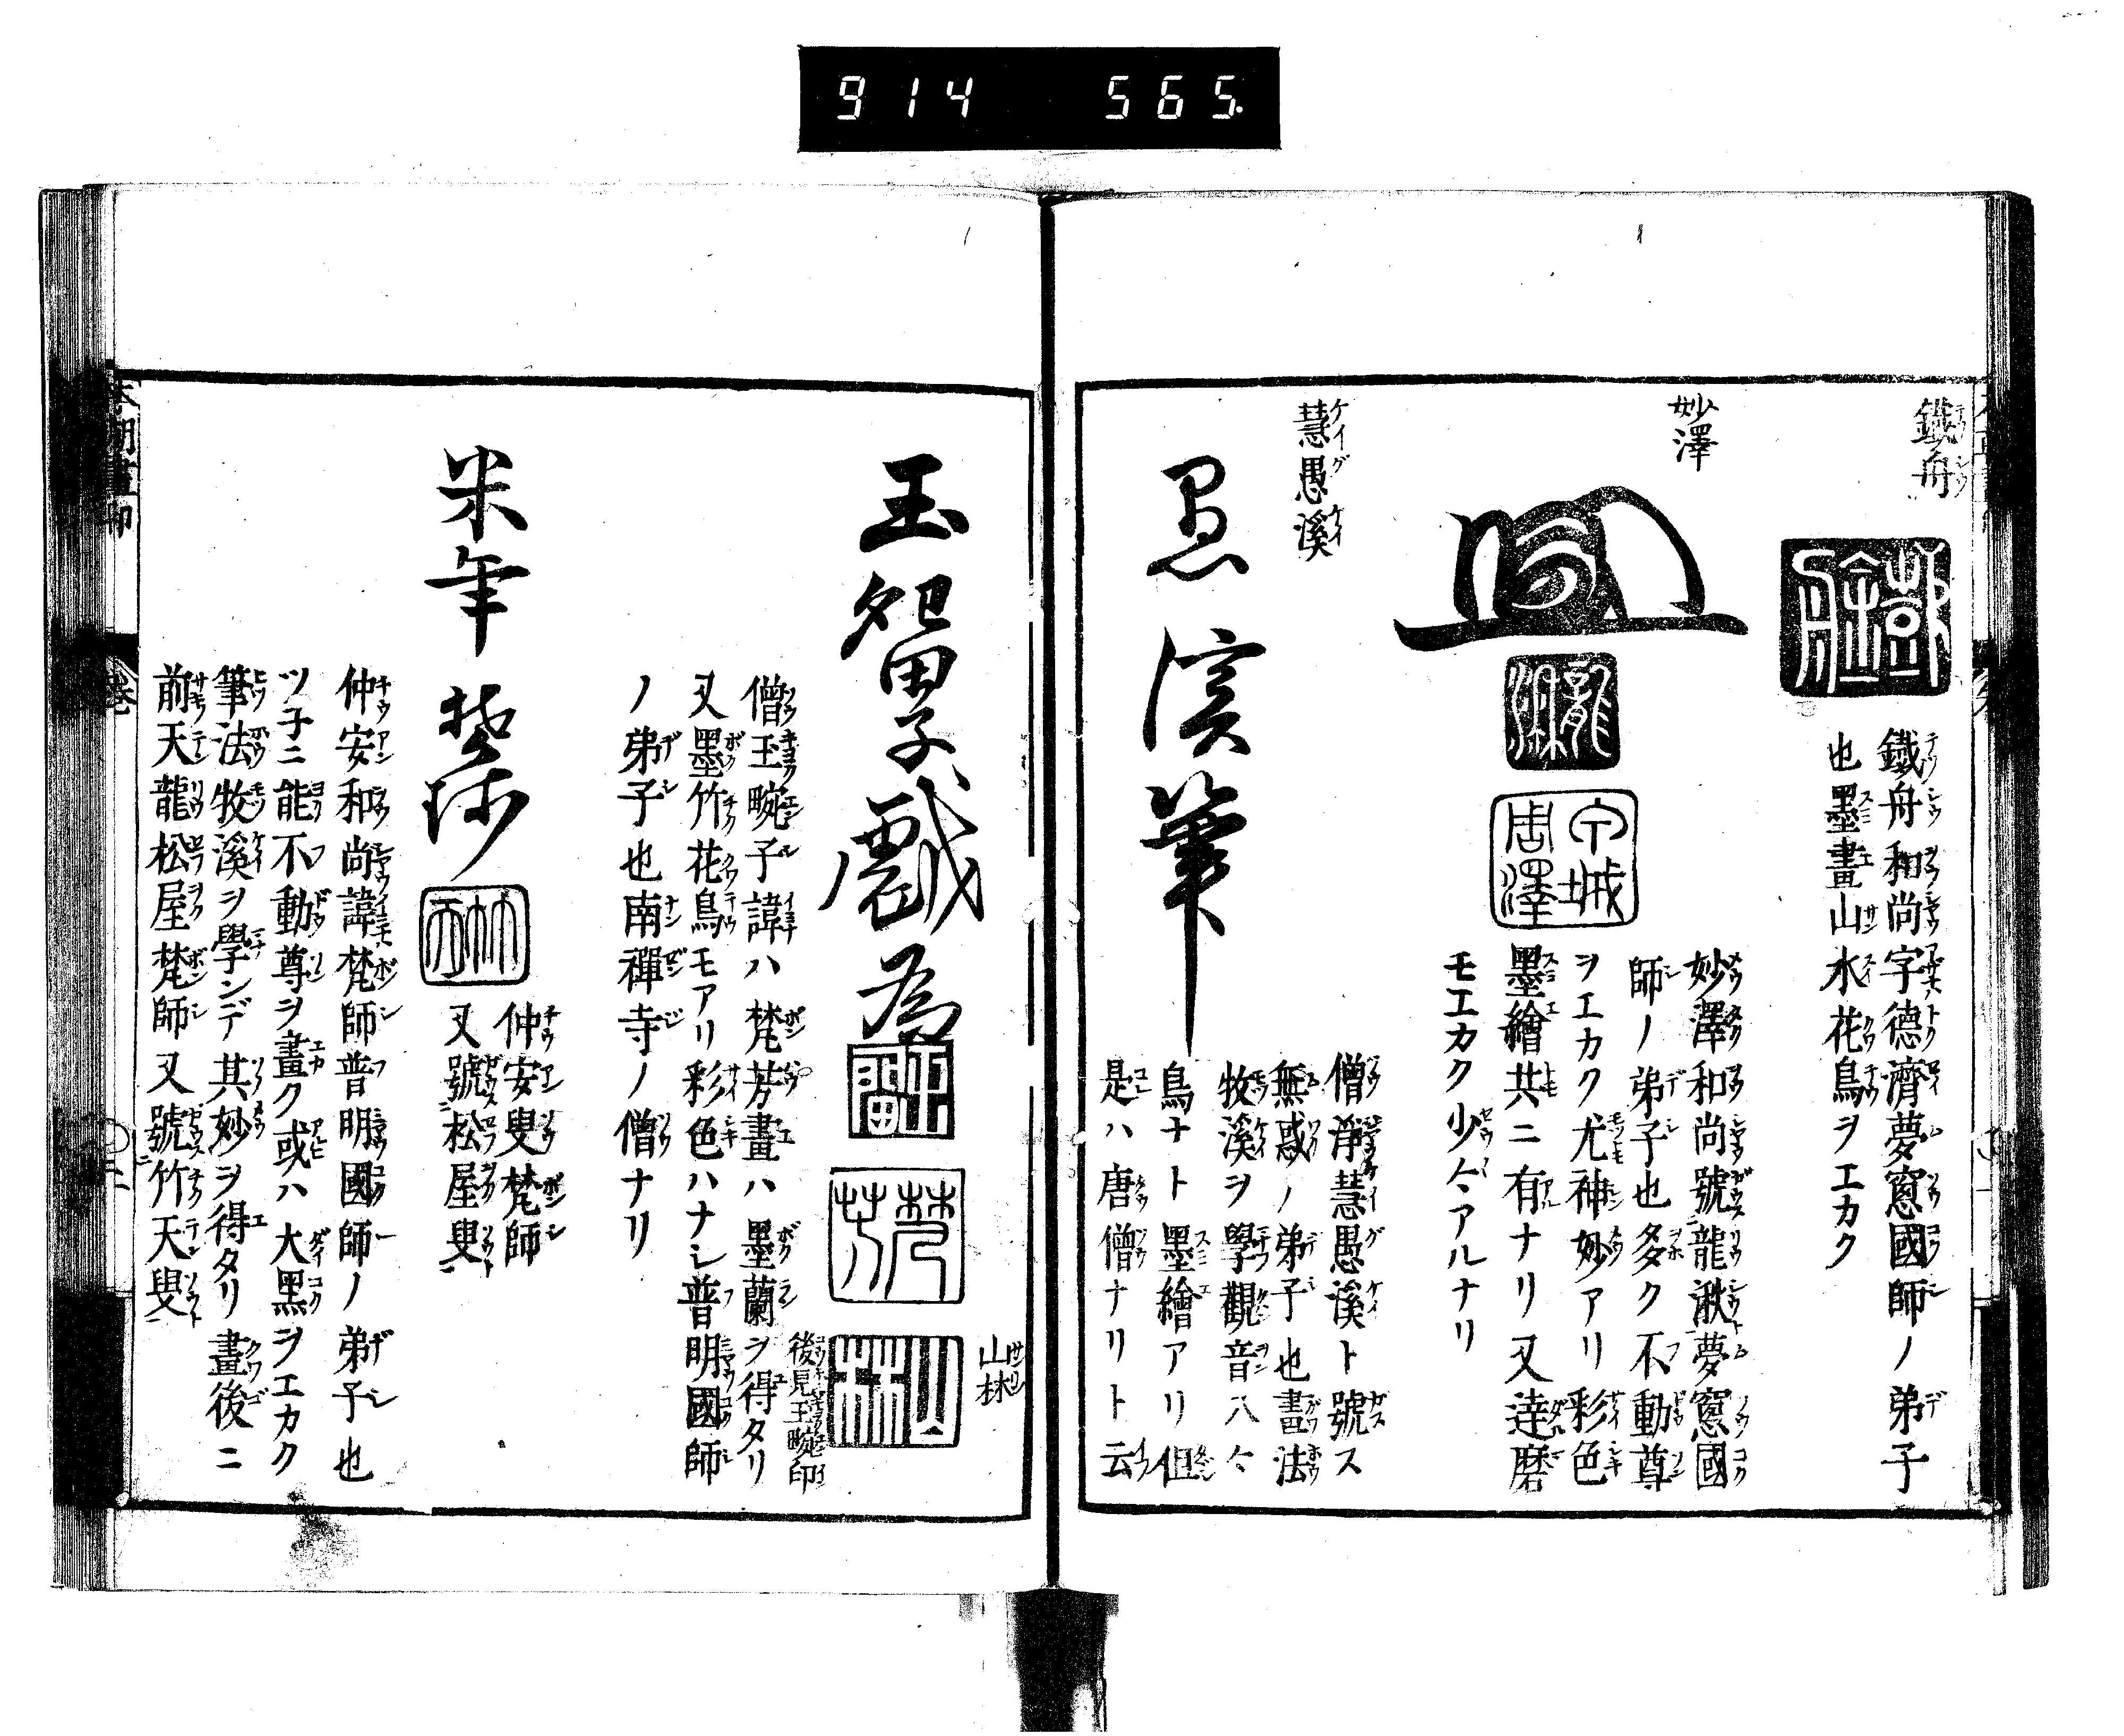 914 565
鐵舟
鐵舟和尚字德濟夢窓國師ノ弟子
也墨畫山水花鳥ヲエカク
妙澤
妙澤和尚號龍湫夢窓國
師ノ弟子也多ク不動尊
ヲエカク尤神妙アリ彩色
墨繪共ニ有ナリ又達磨
モエカク少々アルナリ
龍湫
周澤
慧愚溪
愚溪筆
僧淨慧愚溪ト號ス
無惑ノ弟子也畫法
牧溪ヲ學觀音八々
鳥ナト墨繪アリ但
是ハ唐僧ナリト云
山林
玉畹子戲為
梵芳
後見玉畹印
僧玉畹子諱ハ梵芳畫ハ墨蘭ヲ得タリ
又墨竹花鳥モアリ彩色ハナシ普明國師
ノ弟子也南禪寺ノ僧ナリ
米年梵師
仲安叟梵師
又號松屋叟
仲安和尚諱梵師普明國師ノ弟子也
ツ子ニ能不動尊ヲ畫ク或ハ大黑ヲエカク
筆法牧溪ヲ學ンデ其妙ヲ得タリ畫後ニ
前天龍松屋梵師又號竹天叟
本朝畫印